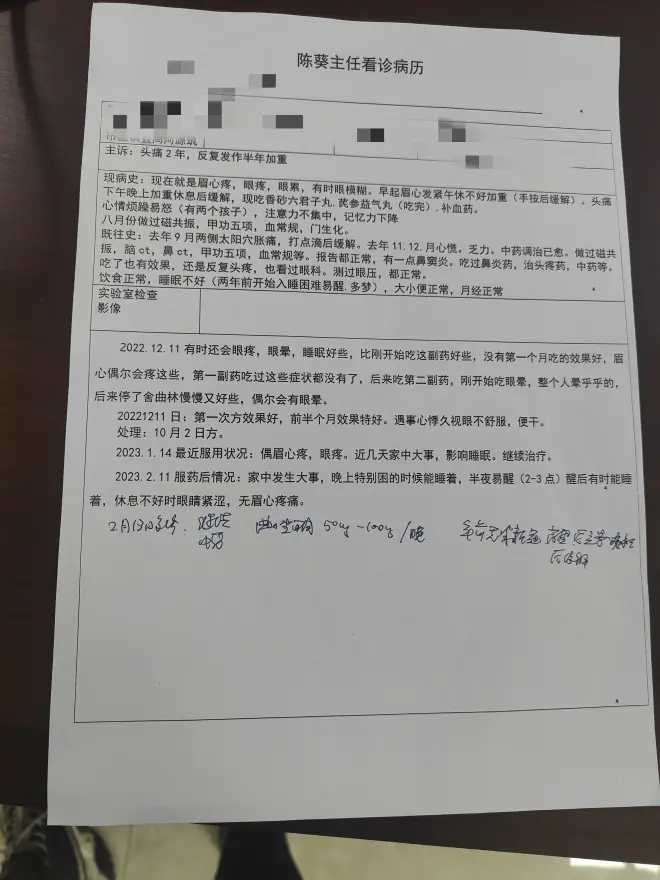 陈葵主任看诊病历
主诉：头痛2年，反复发作半年加重
现病史：现在就是眉心疼，眼疼，眼累，有时眼模糊。早起眉心发紧午休不好加重（手按后缓解）。头痛
下午晚上加重休息后缓解，现吃香砂六君子丸.芪参益气丸（吃完）.补血药。
心情烦躁易怒（有两个孩子），注意力不集中，记忆力下降
八月份做过磁共振，甲功五项，血常规，门生化。
既往史：去年9月两侧太阳穴胀痛，打点滴后缓解。去年11.12.月心慌。乏力。中药调治已愈。做过磁共
振，脑ct，鼻ct，甲功五项，血常规等。报告都正常，有一点鼻窦炎。吃过鼻炎药，治头疼药，中药等。
吃了也有效果，还是反复头疼，也看过眼科。测过眼压，都正常。
饮食正常，睡眠不好（两年前开始入睡困难易醒.多梦），大小便正常，月经正常
实验室检查
影像
2022.12.11 有时还会眼疼，眼晕，睡眠好些，比刚开始吃这副药好些，没有第一个月吃的效果好，眉
心偶尔会疼这些，第一副药吃过这些症状都没有了，后来吃第二副药，刚开始吃眼晕，整个人晕乎乎的，
后来停了舍曲林慢慢又好些，偶尔会有眼晕。
20221211 日：第一次方效果好，前半个月效果特好。遇事心悸久视眼不舒服，便干。
处理：10月2日方。
2023.1.14 最近服用状况：偶眉心疼，眼疼。近几天家中大事，影响睡眠。继续治疗。
2023.2.11 服药后情况：家中发生大事，晚上特别困的时候能睡着，半夜易醒（2-3点）醒后有时能睡
着，休息不好时眼睛紧涩，无眉心疼痛。
2月13日 曲唑酮 50mg-100mg/晚